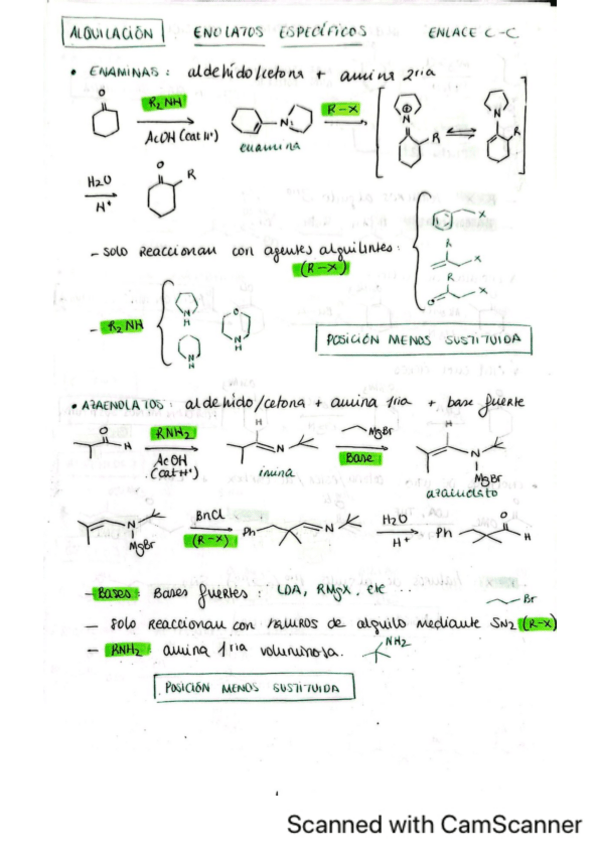 ALQUILACIÓN ENOLATOS ESPECÍFICOS ENLACE C-C
• ENAMINAS: aldehído/cetona + amina 2ria
R2NH
AcOH (cat H+)
enamina
R-X
H2O
H+
- SOLO Reaccionan con agentes alquilantes:
(R-X)
- R2NH
POSICIÓN MENOS SUSTITUIDA
• AZAENOLATOS: aldehído/cetona + amina 1ria + base fuerte
RNH2
AcOH
(cat H+)
imina
MgBr
Base
MgBr
MgBr
BnCl
(R-X)
Ph
H2O
H+
Ph
- Bases: Bases fuertes: LDA, RMgX, etc...
Br
- Solo Reaccionan con de alquilo mediante SN2 (R-X)
- RNH2: amina 1ria voluminosa. NH2
POSICIÓN MENOS SUSTITUIDA
Scanned with CamScanner